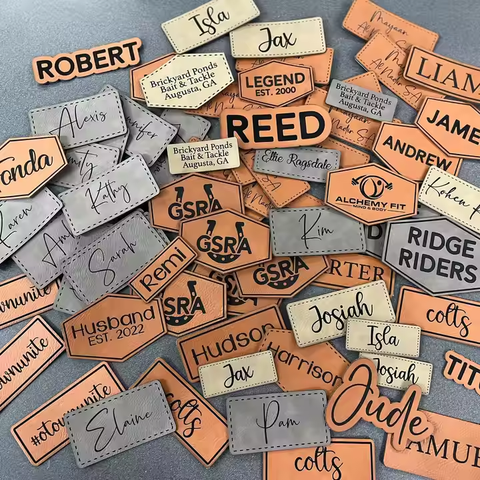 Isla
Jax
ROBERT
Brickyard Ponds
Bait & Tackle
Augusta, GA
LEGEND
EST. 2000
Brickyard Ponds
Bait & Tackle
Augusta, GA
LIAM
Alexis
REED
JAME
Brickyard Ponds
Bait & Tackle
Augusta, GA
Ellie Ragsdale
ANDREW
onda
Kathy
ALCHEMY FIT
MIND & BODY
Karen
GSRA
GSRA
Kim
RIDGE
RIDERS
Sarah
Remi
GSRA
RTER
SRA
ownunite
Husband
EST. 2022
Josiah
colts
Isla
Hudson
Harrison
Josiah
Jax
TIT
ownunite
#otownunite
colts
Jude
Elaine
Pam
AMUE
colts